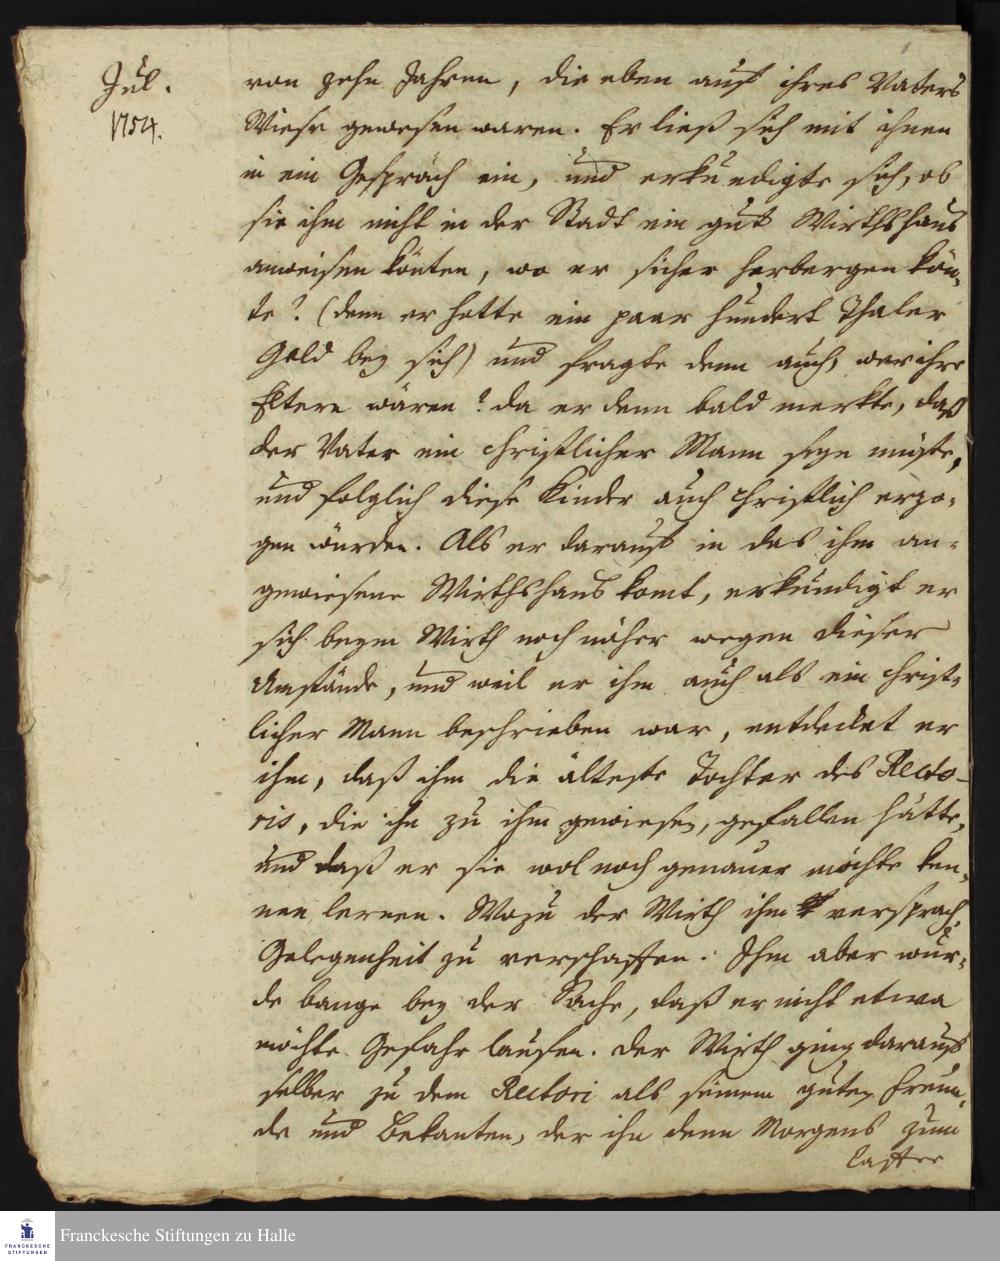 Jul.
1754.
von zehn Jahren, die eben auf ihres Vaters
Wiese gewesen waren. Er ließ sich mit ihnen
in ein Gespräch ein, und erkundigte sich, ob
sie ihm nicht in der Stadt ein gut Wirthshaus
anweisen könten, wo er sicher herbergen kön-
te? (denn er hatte ein paar hundert Thaler
Geld bey sich) und fragte denn auch, wer ihre
Eltern wären? da er denn bald merkte, daß
der Vater ein christlicher Mann seyn müste,
und folglich diese Kinder auch christlich erzo-
gen würden. Als er darauf in das ihm an-
gewiesene Wirthshaus komt, erkundigt er
sich beym Wirth noch näher wegen dieser
Umstände, und weil er ihm auch als ein christ-
licher Mann beschrieben war, entdecket er
ihm, daß ihm die älteste Tochter des Recto-
ris, die ihn zu ihm gewiesen, gefallen hätte,
und daß er sie wol noch genauer möchte ken-
nen lernen. Wozu der Wirth ihm versprach,
Gelegenheit zu verschaffen. Ihm aber wur-
de bange bey der Sache, daß er nicht etwa
möchte Gefahr laufen. Der Wirth ging darauf
selber zu dem Rectori als seinem guten Freun-
de und Bekanten, der ihn denn Morgens zum
Caffee
FRANCKESCHE
STIFTUNGEN
Franckesche Stiftungen zu Halle